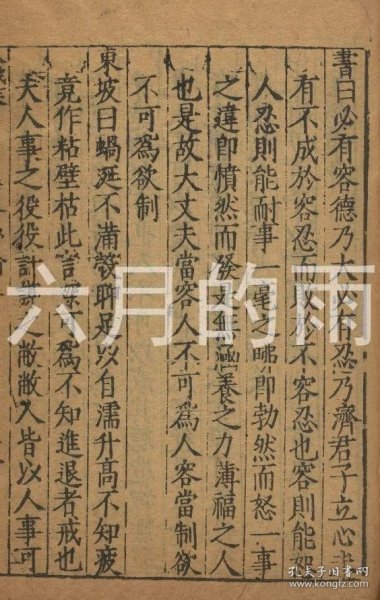 書曰必有容德乃大必有忍乃濟君子立心未
有不成於容忍而敗於不容忍也容則能恕
人忍則能耐事一毫之咈即勃然而怒一事
之違即憤然而發是無涵養之力薄福之人
也是故大丈夫當容人不可為人容當制欲
不可為欲制
東坡曰蝸涎不滿殼聊足以自濡升高不知疲
竟作粘壁枯此言深可為不知進退者戒也
夫人事之役役計謀之敝敝人皆以人事可
六月的雨
孔夫子旧书网
www.kongfz.com